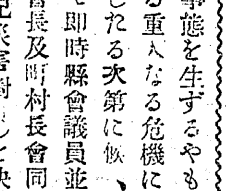 事態を生ずるやも
る重大なる危機に
したる次第に候、
即時縣會議員並
會長及町村長會同